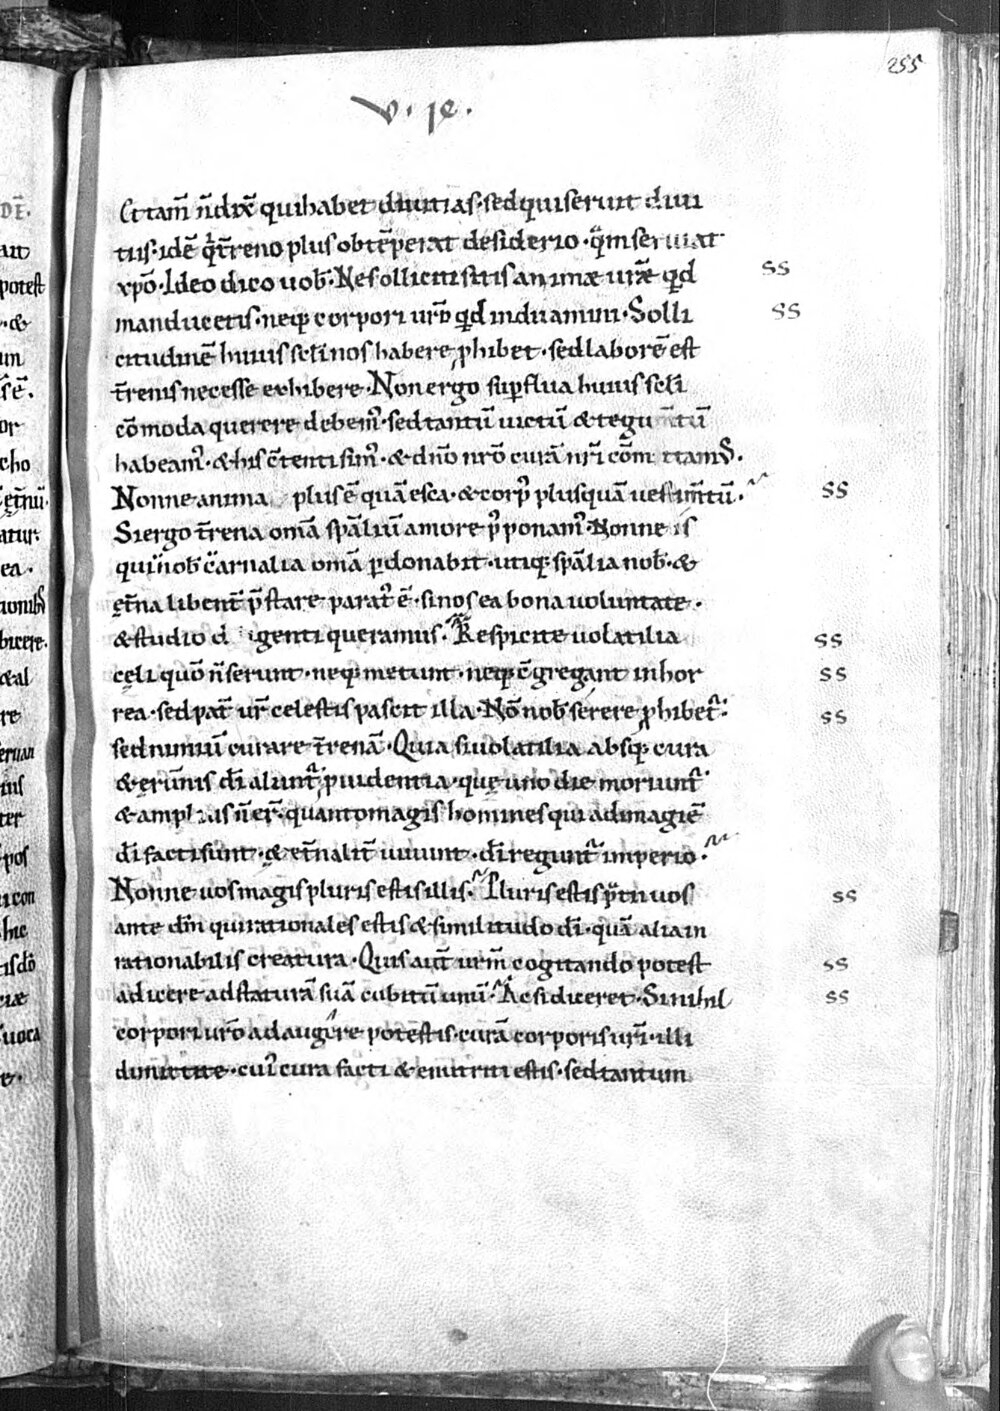 255
v. ie.
Et tam̄ n̄ dix̄ qui habet diuitias· sed qui seruit diui
tiis· idē q̇ t̄reno plus obtēperat desiderio· q̄m seruiat
xp̄o· Ideo dico uob̄· Ne solliciti sitis animæ ur̄æ qid
manducetis· neq; corpori ur̄o qid induamini· Solli
citudinē huius sc̄li nos habere ꝓhibet· sed laborē est
t̄renis necesse exhibere· Non ergo suꝑflua huius sc̄li
cōmoda querere debem᷒· sed tantū uictū & tegum̄tū
habeam᷒· & his c̄tenti sim᷒· & dn̄o nr̄o curā nr̄i cōmittam᷒·
Nonne anima plus ē quā esca· & corp᷒ plus quā uestim̄tū·
Si ergo t̄rena om̄a sp̄aliū amore p᷒ponam᷒· Nonne is
qui nob̄ carnalia om̄a ꝑdonabit· utiq; sp̄alia nob̄· &
ęt̄na libent̄ p̄stare parat᷒ ē· si nos ea bona uoluntate·
& studio d igenti queramus· Respicite uolatilia
cęli quō n̄ serunt· neq; metunt· neq; c̄gregant in hor
rea· sed pat̄ ur̄ celestis pascit illa· Nō nob̄ serere ꝓhibet᷑·
sed nimiū curare t̄renā· Quia si uolatilia absq; cura
& ęrūnis dī alunt᷑ ꝓuidentia· quę uno die moriunt᷑·
& amplius n̄ er̄· quanto magis homines qui ad imaginē
dī facti sunt· & ęt̄nalit̄ uiuunt· dī regunt᷑ imperio·
Nonne uos magis pluris estis illis· Pluris estis q̄tū uos
ante dm̄ qui rationales estis & similitudo dī· quā alia in
rationabilis creatura· Quis aut̄ ur̄m cogitando potest
adicere ad staturā suā cubitū unū· Ac si diceret· Si nihil
corpori ur̄o ad augere potestis· curā corporis ur̄i· illi
dimittite· cui᷒ cura facti & enutriti estis· sed tantum
ss
ss
ss
ss
ss
ss
ss
ss
ss